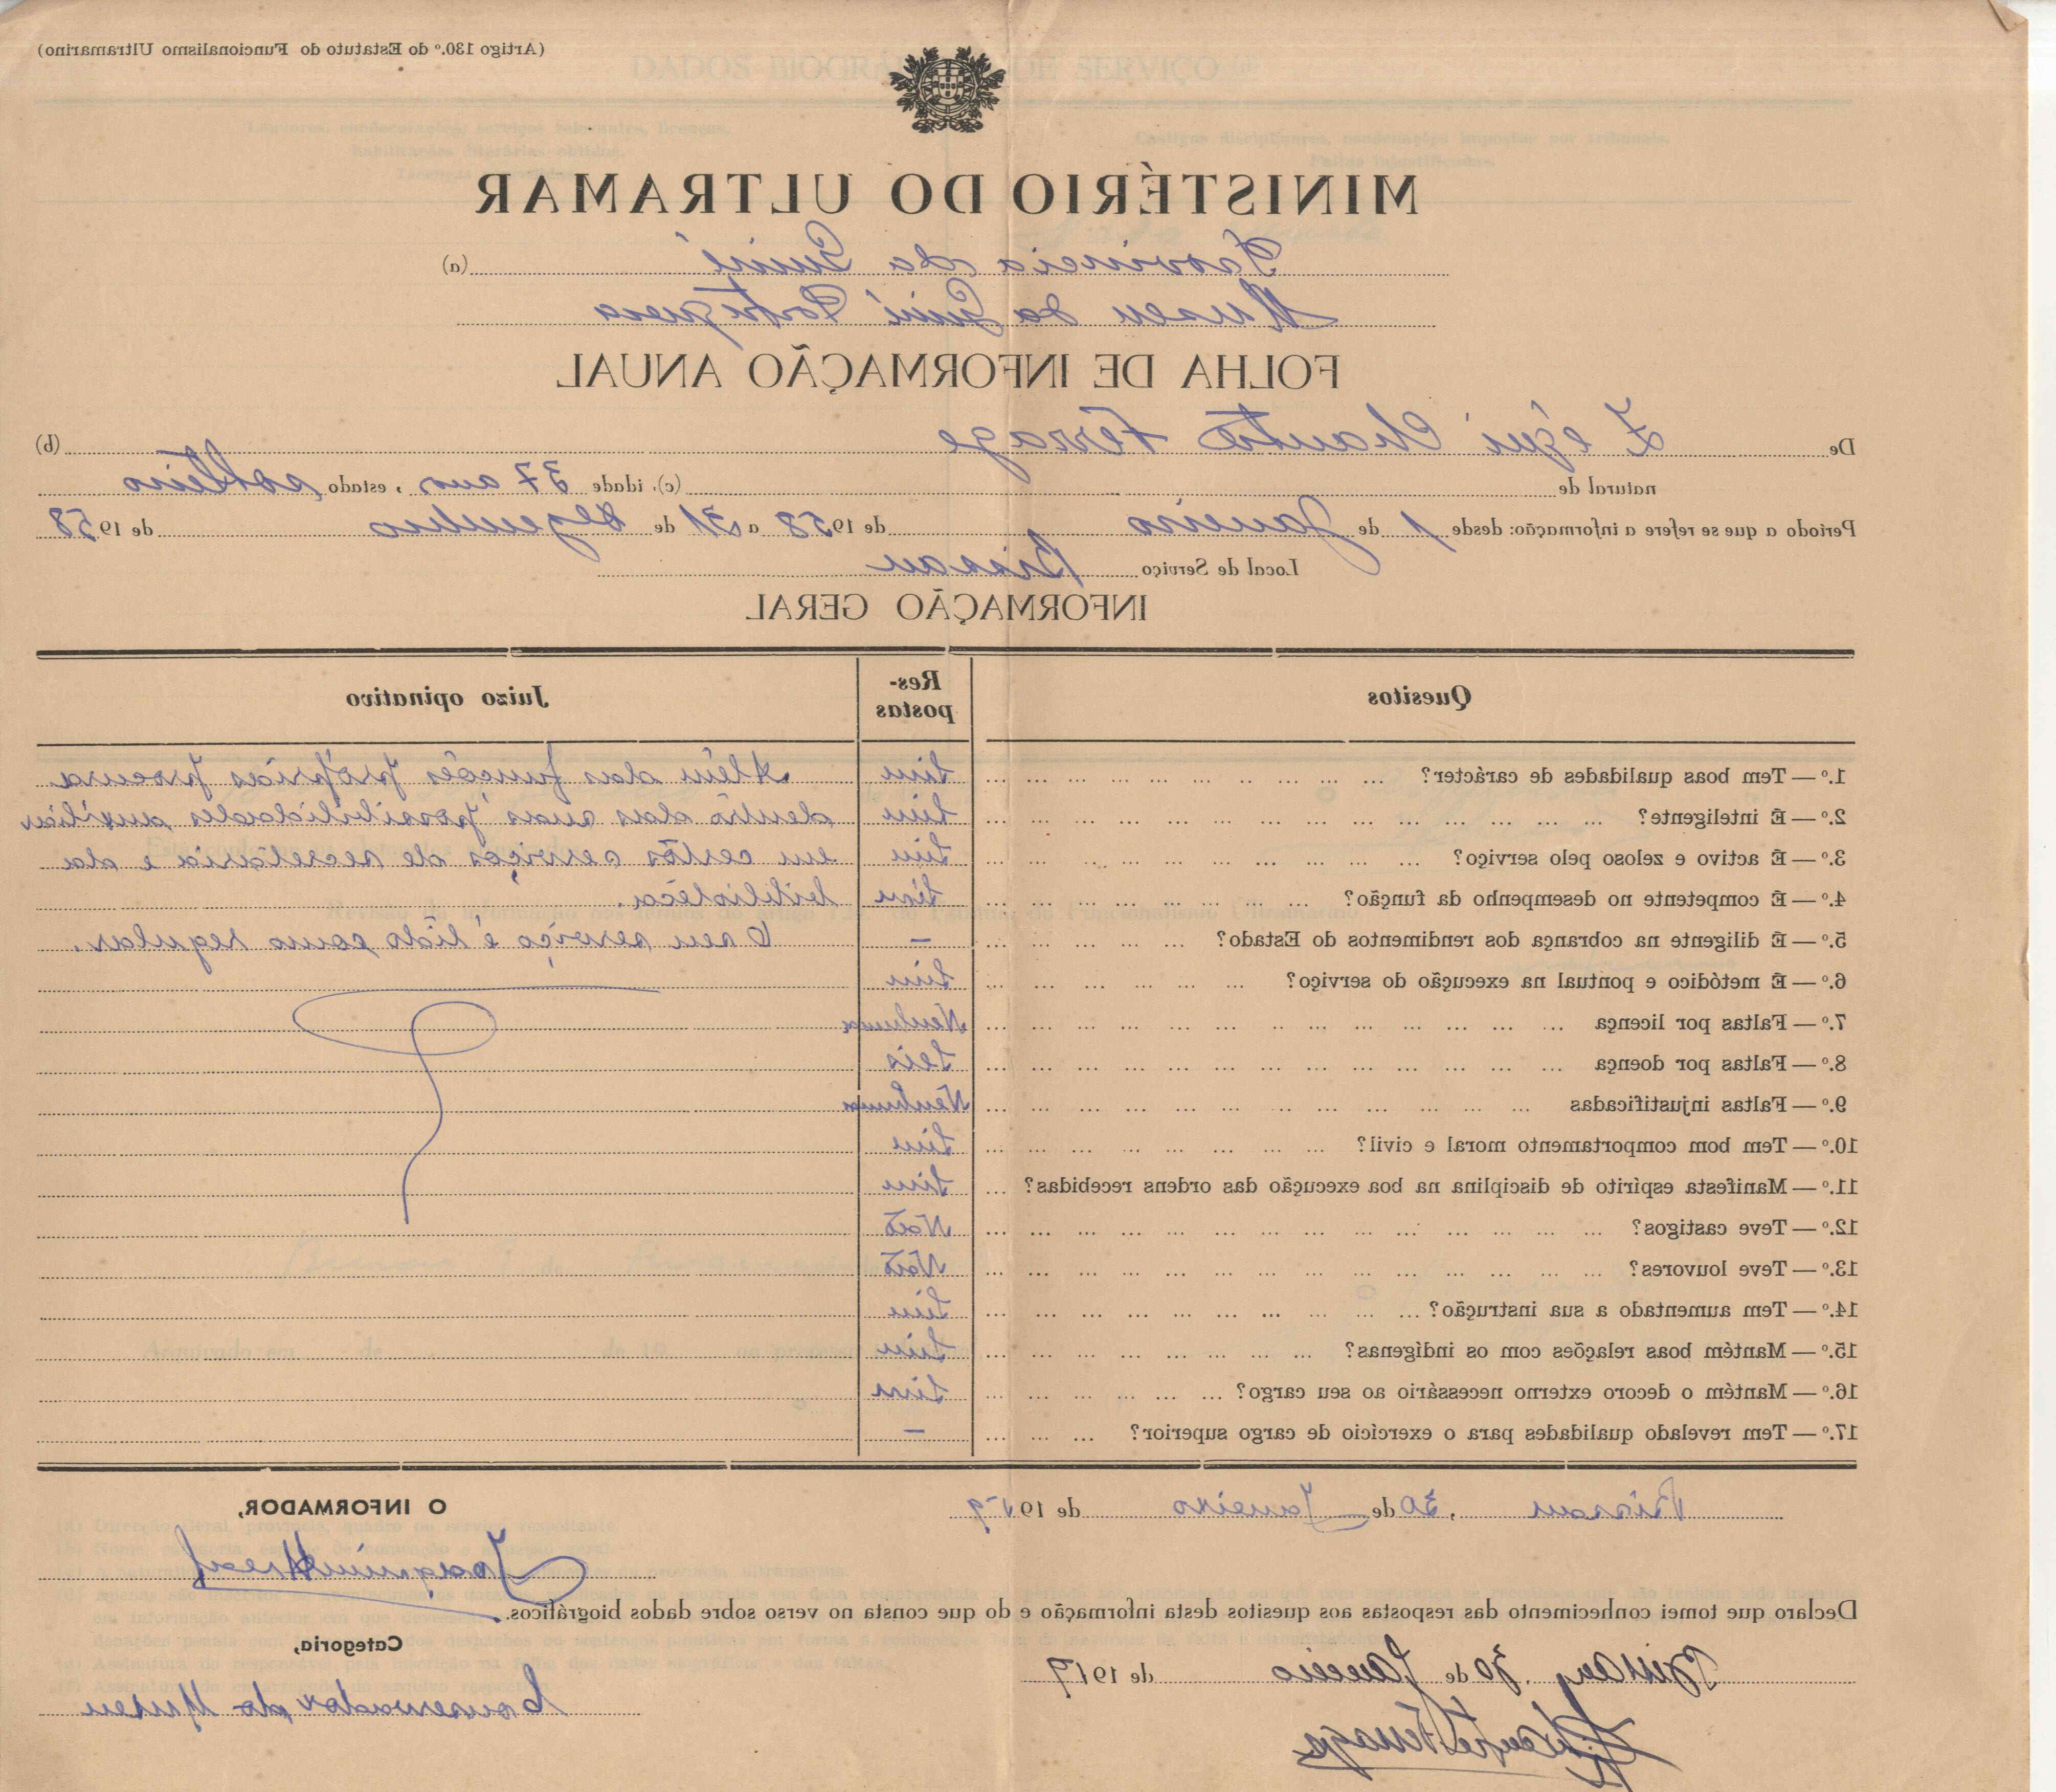 (Artigo 130.º do Estatuto do Funcionalismo Ultramarino)
MINISTÉRIO DO ULTRAMAR
Provincia da Guiné (a)
Museu da Guiné Portuguesa
FOLHA DE INFORMAÇÃO ANUAL
De Chantre Ferrage (b)
natural de (c), idade 37 anos, estado solteiro
Período a que se refere a informação: desde 1 de Janeiro de 1958 a 31 de Dezembro de 1958
Local de Serviço Bissau
INFORMAÇÃO GERAL
Quesitos Res-postas Juizo opinativo
1.º — Tem boas qualidades de carácter? Sim Além das funções próprias procura
2.º — É inteligente? Sim dentro das suas possibilidades auxiliar
3.º — É activo e zeloso pelo serviço? Sim em certos serviços de secretaria e da
4.º — É competente no desempenho da função? Sim biblioteca.
5.º — É diligente na cobrança dos rendimentos do Estado? — O seu serviço é tido como regular.
6.º — É metódico e pontual na execução do serviço? Sim
7.º — Faltas por licença Nenhuma
8.º — Faltas por doença Seis
9.º — Faltas injustificadas Nenhuma
10.º — Tem bom comportamento moral e civil? Sim
11.º — Manifesta espírito de disciplina na boa execução das ordens recebidas? Sim
12.º — Teve castigos? Não
13.º — Teve louvores? Não
14.º — Tem aumentado a sua instrução? Sim
15.º — Mantém boas relações com os indígenas? Sim
16.º — Mantém o decoro externo necessário ao seu cargo? Sim
17.º — Tem revelado qualidades para o exercício de cargo superior? —
Bissau, 30 de Janeiro de 1959
O INFORMADOR,
Joaquim Areal
Declaro que tomei conhecimento das respostas aos quesitos desta informação e do que consta no verso sobre dados biográficos.
Categoria,
Bissau, 30 de Janeiro de 1959
Conservador do Museu
Chantre Ferrage